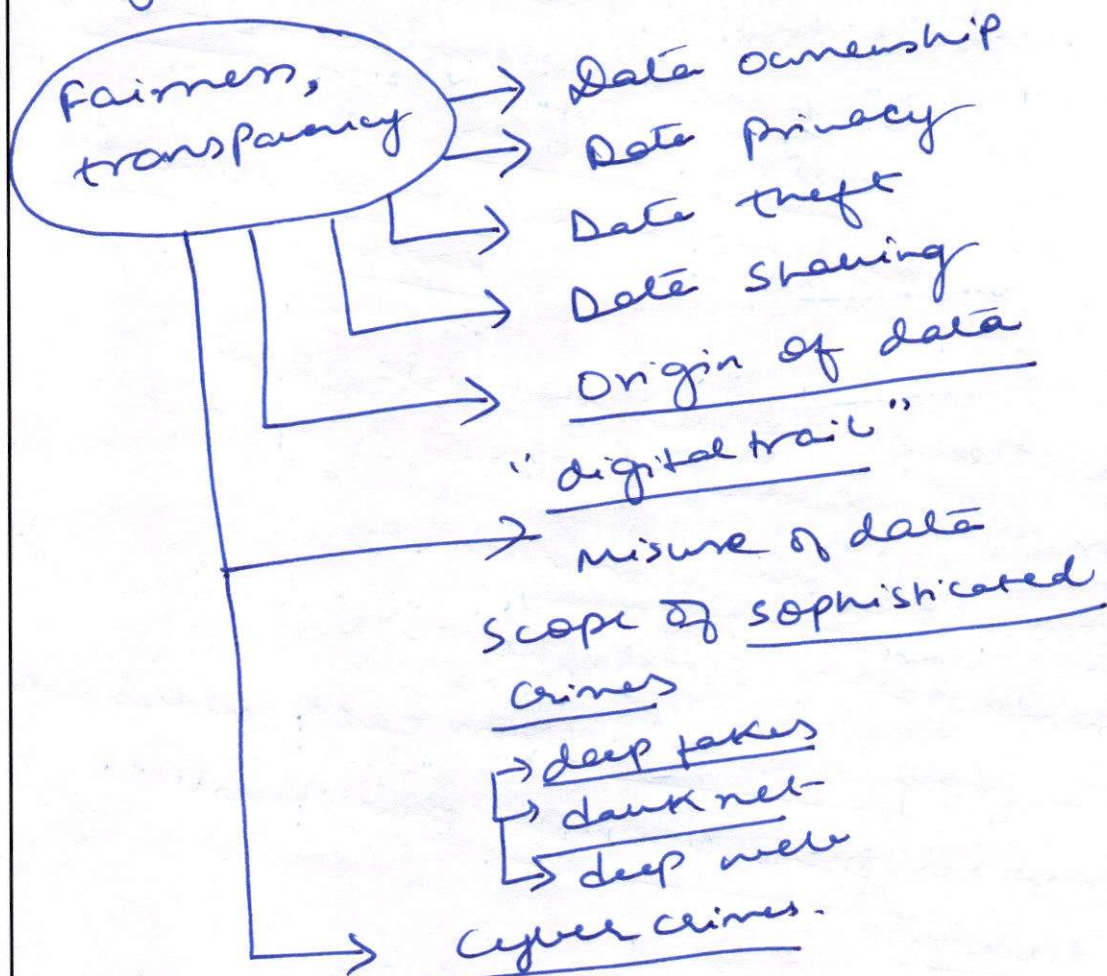 Fairness,
transparency
Data ownership
Data privacy
Data theft
Data sharing
Origin of data
"digital trail"
misuse of data
scope of sophisticated
crimes
deep fakes
dark net
deep web
Cyber crimes.